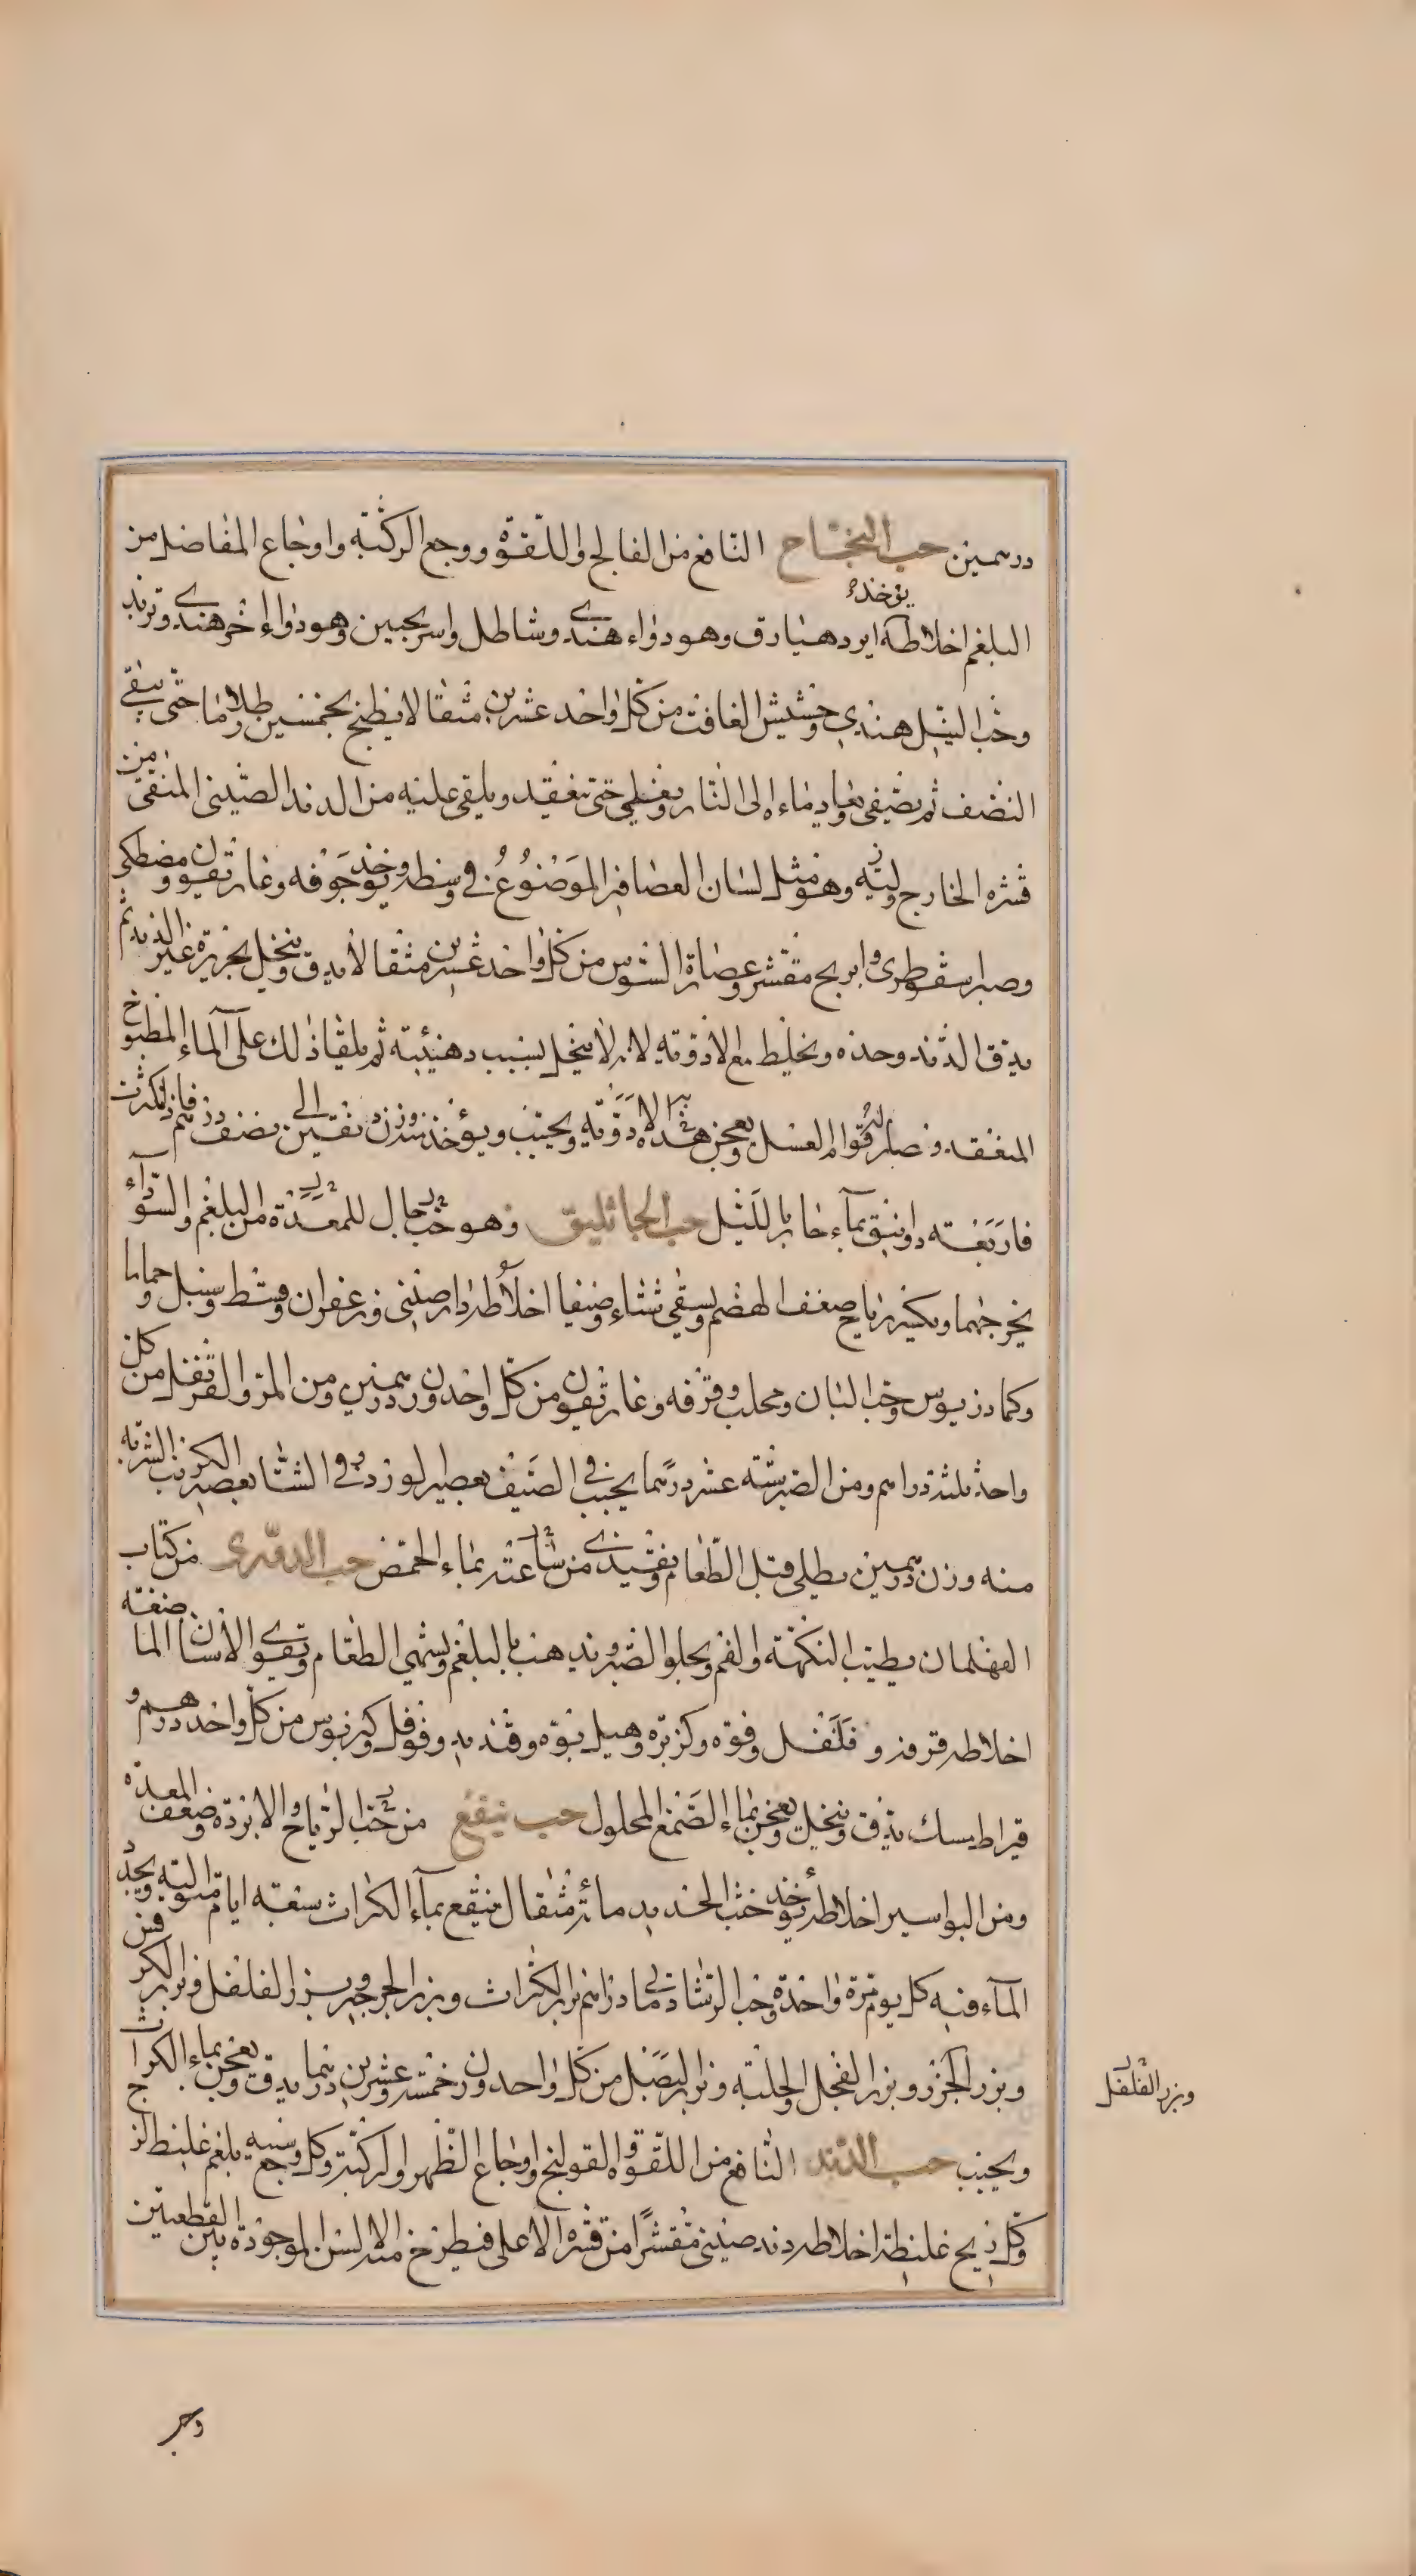 درهمين حب النجاح النافع من الفالج واللقوة ووجع الركبة واوجاع المفاصل من
يوخذ
البلغم اخلاطه ايردهيارق وهو دواء هندي وشاطل واسريحبين وهو دواء اخر هندي وتربد
وحب النيل هندي وحشيش الغافت من كل واحد عشرين مثقالا يطبخ بخمسين رطلا ما حتى يبقى
النصف ثم يصفى ويعاد ماءه الى النار ويغلى حتى ينعقد ويلقى عليه من الدند الصيني المنقى من
قشره الخارج ولبه وهو مثل لسان العصافير الموضوع في وسطه ويوخذ جوفه وغاريقون ومصطكى
وصبر اسقوطرى وابريج مقشر وعصارة السوس من كل واحد عشرين مثقالا يدق وينخل بحريرة غير الدند ثم
يدق الدند وحده ويخلط مع الادوية لانه لا ينخل بسبب دهنيته ثم يلقا ذلك على الماء المطبوخ
المنعقد وصار له قوام العسل ويعجن هذه الادوية ويحبب ويؤخذ وزن دنقين الى نصف درهم فان كثرت
فاربعة دوانيق بماء حار بالليل حب الجاثليق وهو حب جال للمعدة من البلغم والسوداء
يخرجهما ويكسر رياح ضعف الهضم ويسقى شتاء وصيفا اخلاطه دارصيني وزعفران وقسط وسنبل وحماما
وكمادريوس وحب البان ومحلب وقرفه وغاريقون من كل واحد وزن درهمين ومن المر والقرنفل من كل
واحد ثلثة دراهم ومن الصبر ستة عشر درهما يحبب في الصيف بعصير لورد وفي الشتا بعصير الكرنب الشربه
منه وزن درهمين يطلى قبل الطعام وتفشيدي من ساعته بماء الحمص حب الدوقري من كتاب
القهلمان يطيب النكهة والفم ويجلو الضرو ويذهب بالبلغم ويشهى الطعام ويقوي الاسنان الما صنعته
اخلاطه قروفر وفلفل وفوه وكزبره وهيل بوه وقنديد وفوفل وكبربوس من كل واحد درهم و
قيراط مسك يدق وينخل ويعجن بماء الصمغ المحلول حب ينفع من حب الرياح والابردة وضعف المعدة
ومن البواسير اخلاطه يؤخذ خبث الحديد مائة مثقال ينقع بماء الكراث سبعة ايام متوالية ويجدد
الماء فيه كل يوم مرة واحدة وحب الرشاد بزر الكراث وبزر الجرجير وبزر الفلفل وبزر الكر فس
وبزر الجزر وبزر الفجل والحلبة وبزر البصل من كل واحد وزن خمسة وعشرين درهما يدق ويعجن بماء الكراث
وبزر الفلفل
ويحبب حب الدند النافع من اللقوة والقولنج واوجاع الظهر والركبة وكل وجع سببه بلغم غليظ لزج
وكل ريح غليظة اخلاطه دند صيني مقشرا من قشره الاعلى فيطرخ منه الالسن الموجودة بين القطعتين